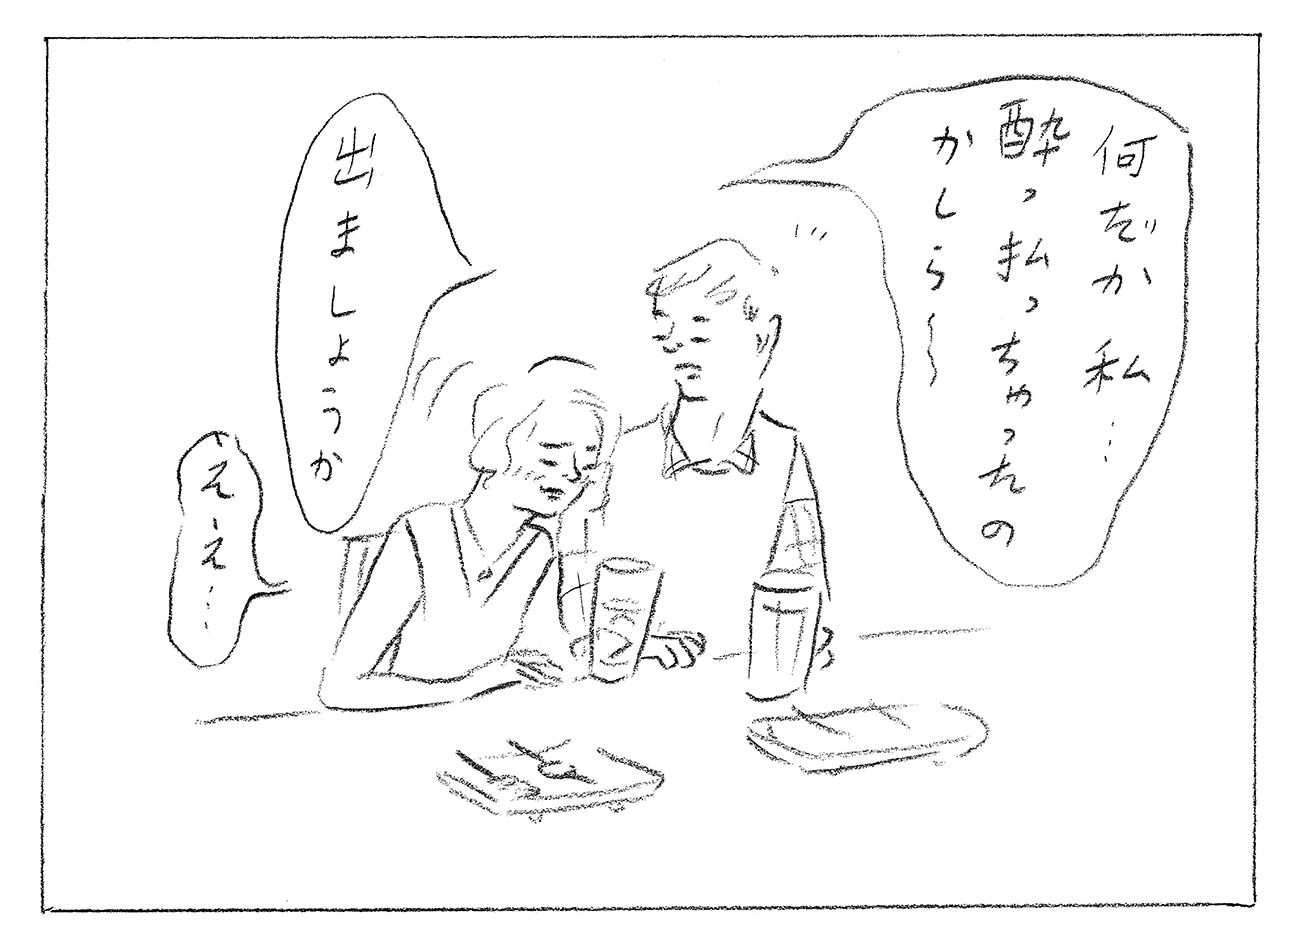 何だか私…
酔っ払っちゃったの
かしら〜〜
出ましょうか
え、え…